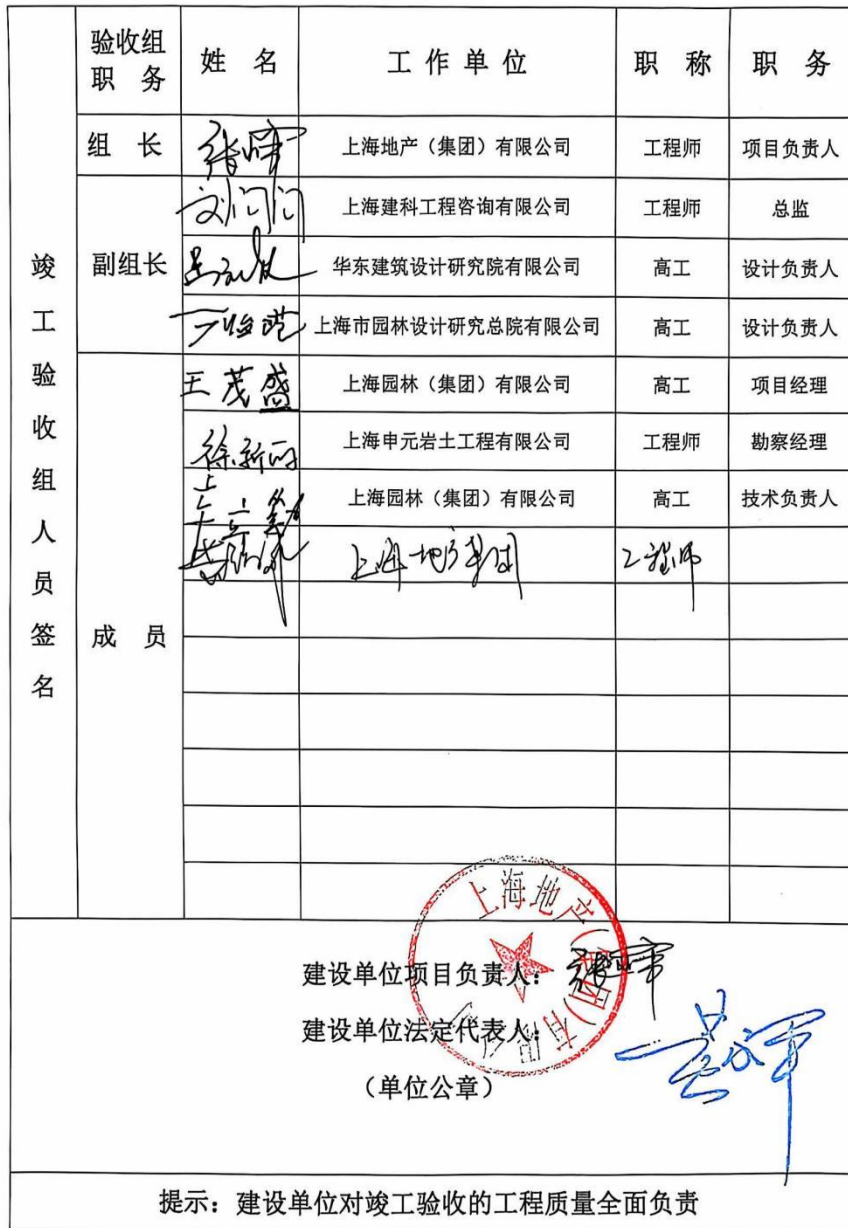 验收组职务 姓名 工作单位 职称 职务
竣工验收组人员签名
组长 上海地产（集团）有限公司 工程师 项目负责人
副组长
刘闪闪 上海建科工程咨询有限公司 工程师 总监
华东建筑设计研究院有限公司 高工 设计负责人
上海市园林设计研究总院有限公司 高工 设计负责人
成员
王茂盛 上海园林（集团）有限公司 高工 项目经理
上海申元岩土工程有限公司 工程师 勘察经理
上海园林（集团）有限公司 高工 技术负责人
上海地产集团 工程师
上海地产（集团）有限公司
建设单位项目负责人：
建设单位法定代表人：
（单位公章）
提示：建设单位对竣工验收的工程质量全面负责